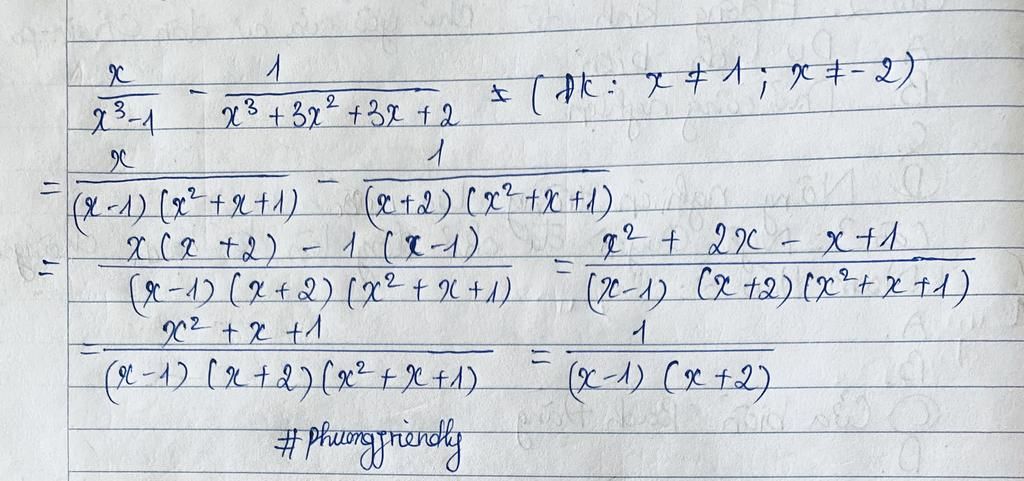 x/(x³-1) - 1/(x³+3x²+3x+2) = (ĐK: x ≠ 1; x ≠ -2)
= x/((x-1)(x²+x+1)) - 1/((x+2)(x²+x+1))
= (x(x+2) - 1(x-1))/((x-1)(x+2)(x²+x+1)) = (x²+2x-x+1)/((x-1)(x+2)(x²+x+1))
= (x²+x+1)/((x-1)(x+2)(x²+x+1)) = 1/((x-1)(x+2))
#phuongfriendly